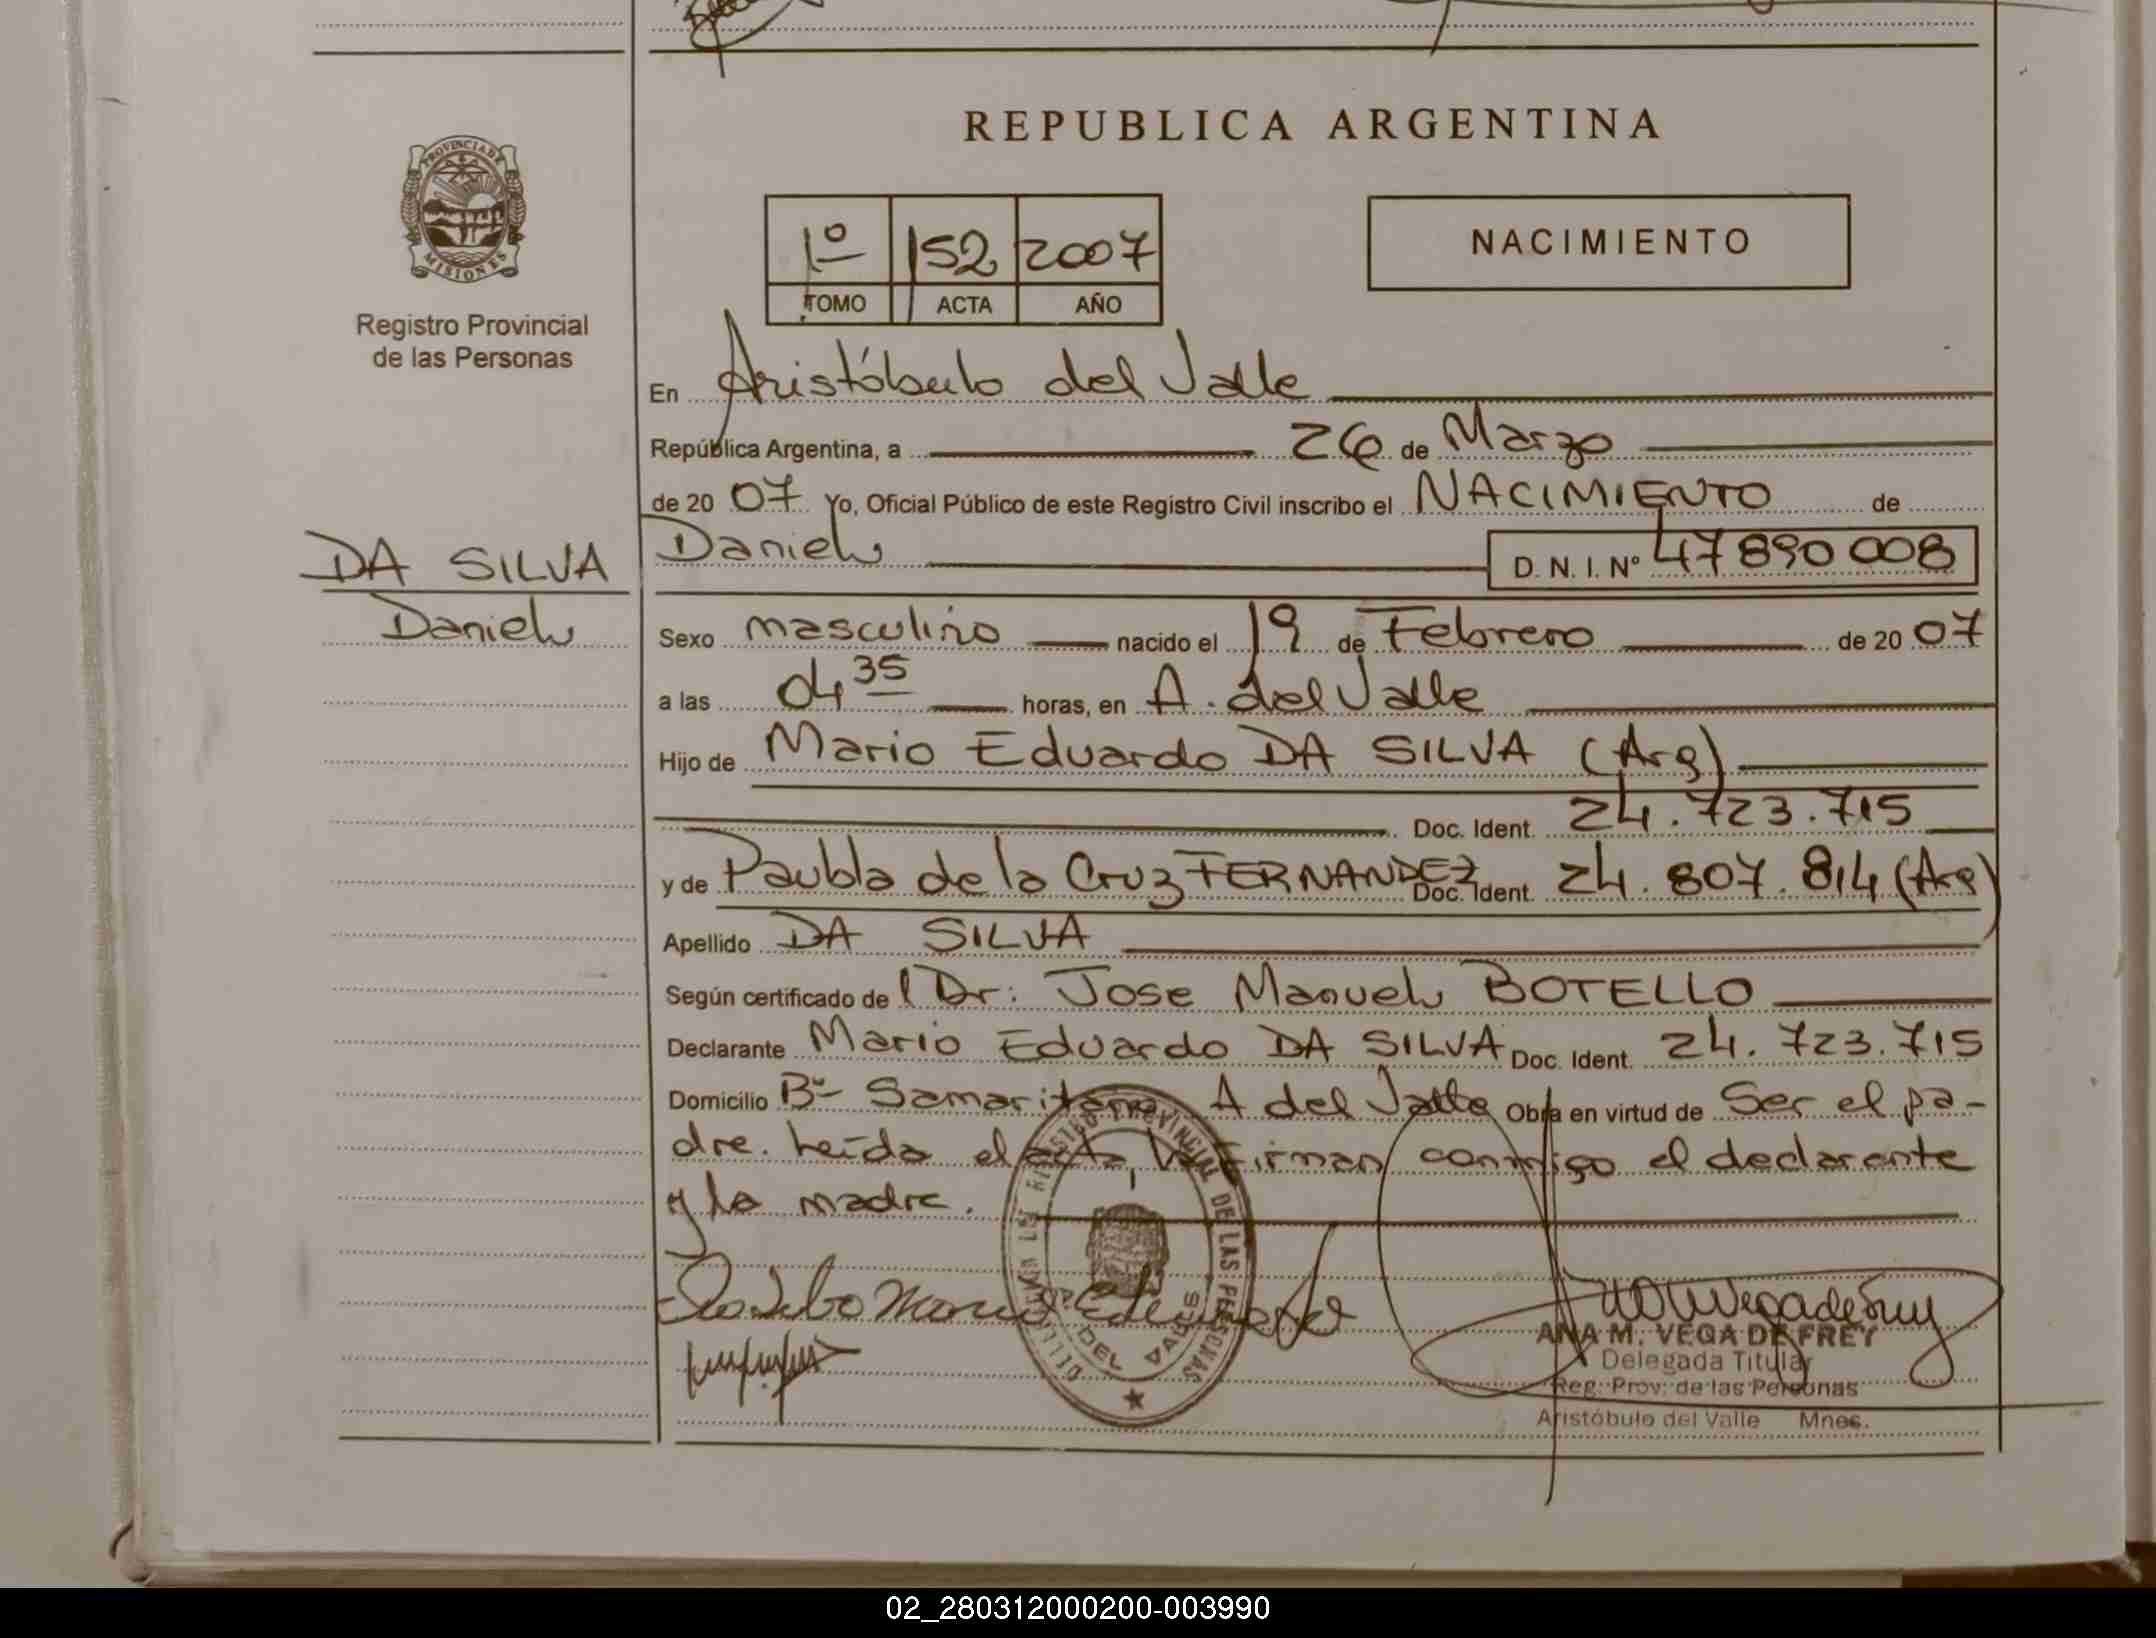 REPUBLICA ARGENTINA
PROVINCIA DE MISIONES
Registro Provincial
de las Personas
1º 152 2007
TOMO ACTA AÑO
NACIMIENTO
En Aristóbulo del Valle
República Argentina, a 26 de Marzo
de 2007 Yo, Oficial Público de este Registro Civil inscribo el NACIMIENTO de
DA SILVA
Daniel
Daniel D. N. I. Nº 47890008
Sexo masculino nacido el 19 de Febrero de 2007
a las 04 35 horas, en A. del Valle
Hijo de Mario Eduardo DA SILVA (Arg)
Doc. Ident. 24.723.715
y de Paubla de la Cruz FERNANDEZ Doc. Ident. 24.807.814 (Arg)
Apellido DA SILVA
Según certificado del Dr: Jose Manuel BOTELLO
Declarante Mario Eduardo DA SILVA Doc. Ident. 24.723.715
Domicilio Bº Samaritano A del Valle Obra en virtud de Ser el pa-
dre. Leída el acta, la firman conmigo el declarante
y la madre.
REGISTRO PROVINCIAL DE LAS PERSONAS
DEL VALLE
ANA M. VEGA DE FREY
Delegada Titular
Reg. Prov. de las Personas
Aristóbulo del Valle Mnes.
02_280312000200-003990